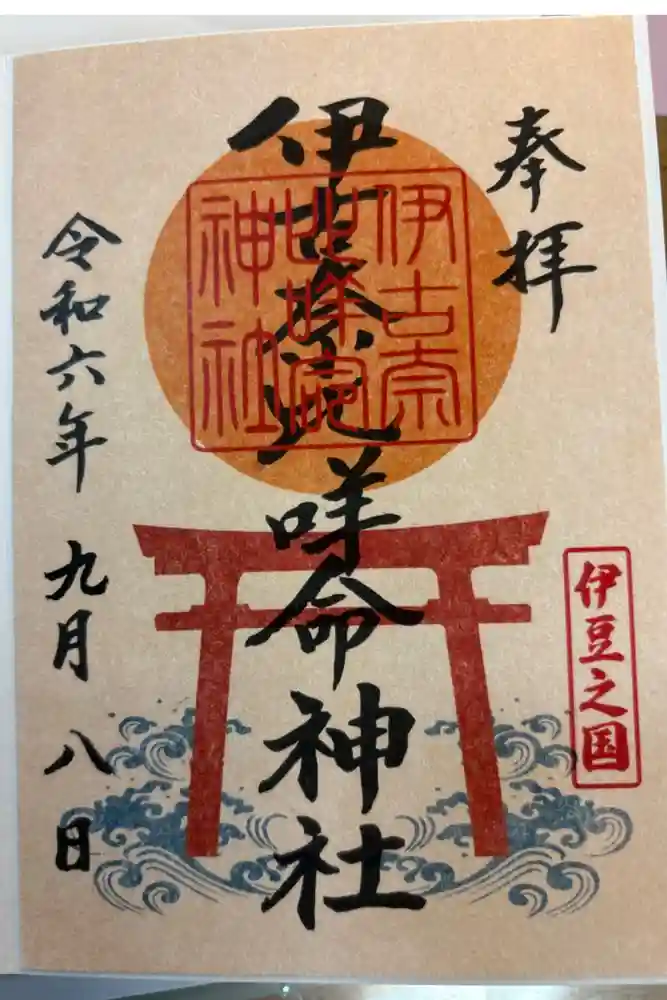 奉拝
伊豆之国
伊古奈比咩命神社
伊古奈比咩命神社
令和六年 九月 八日